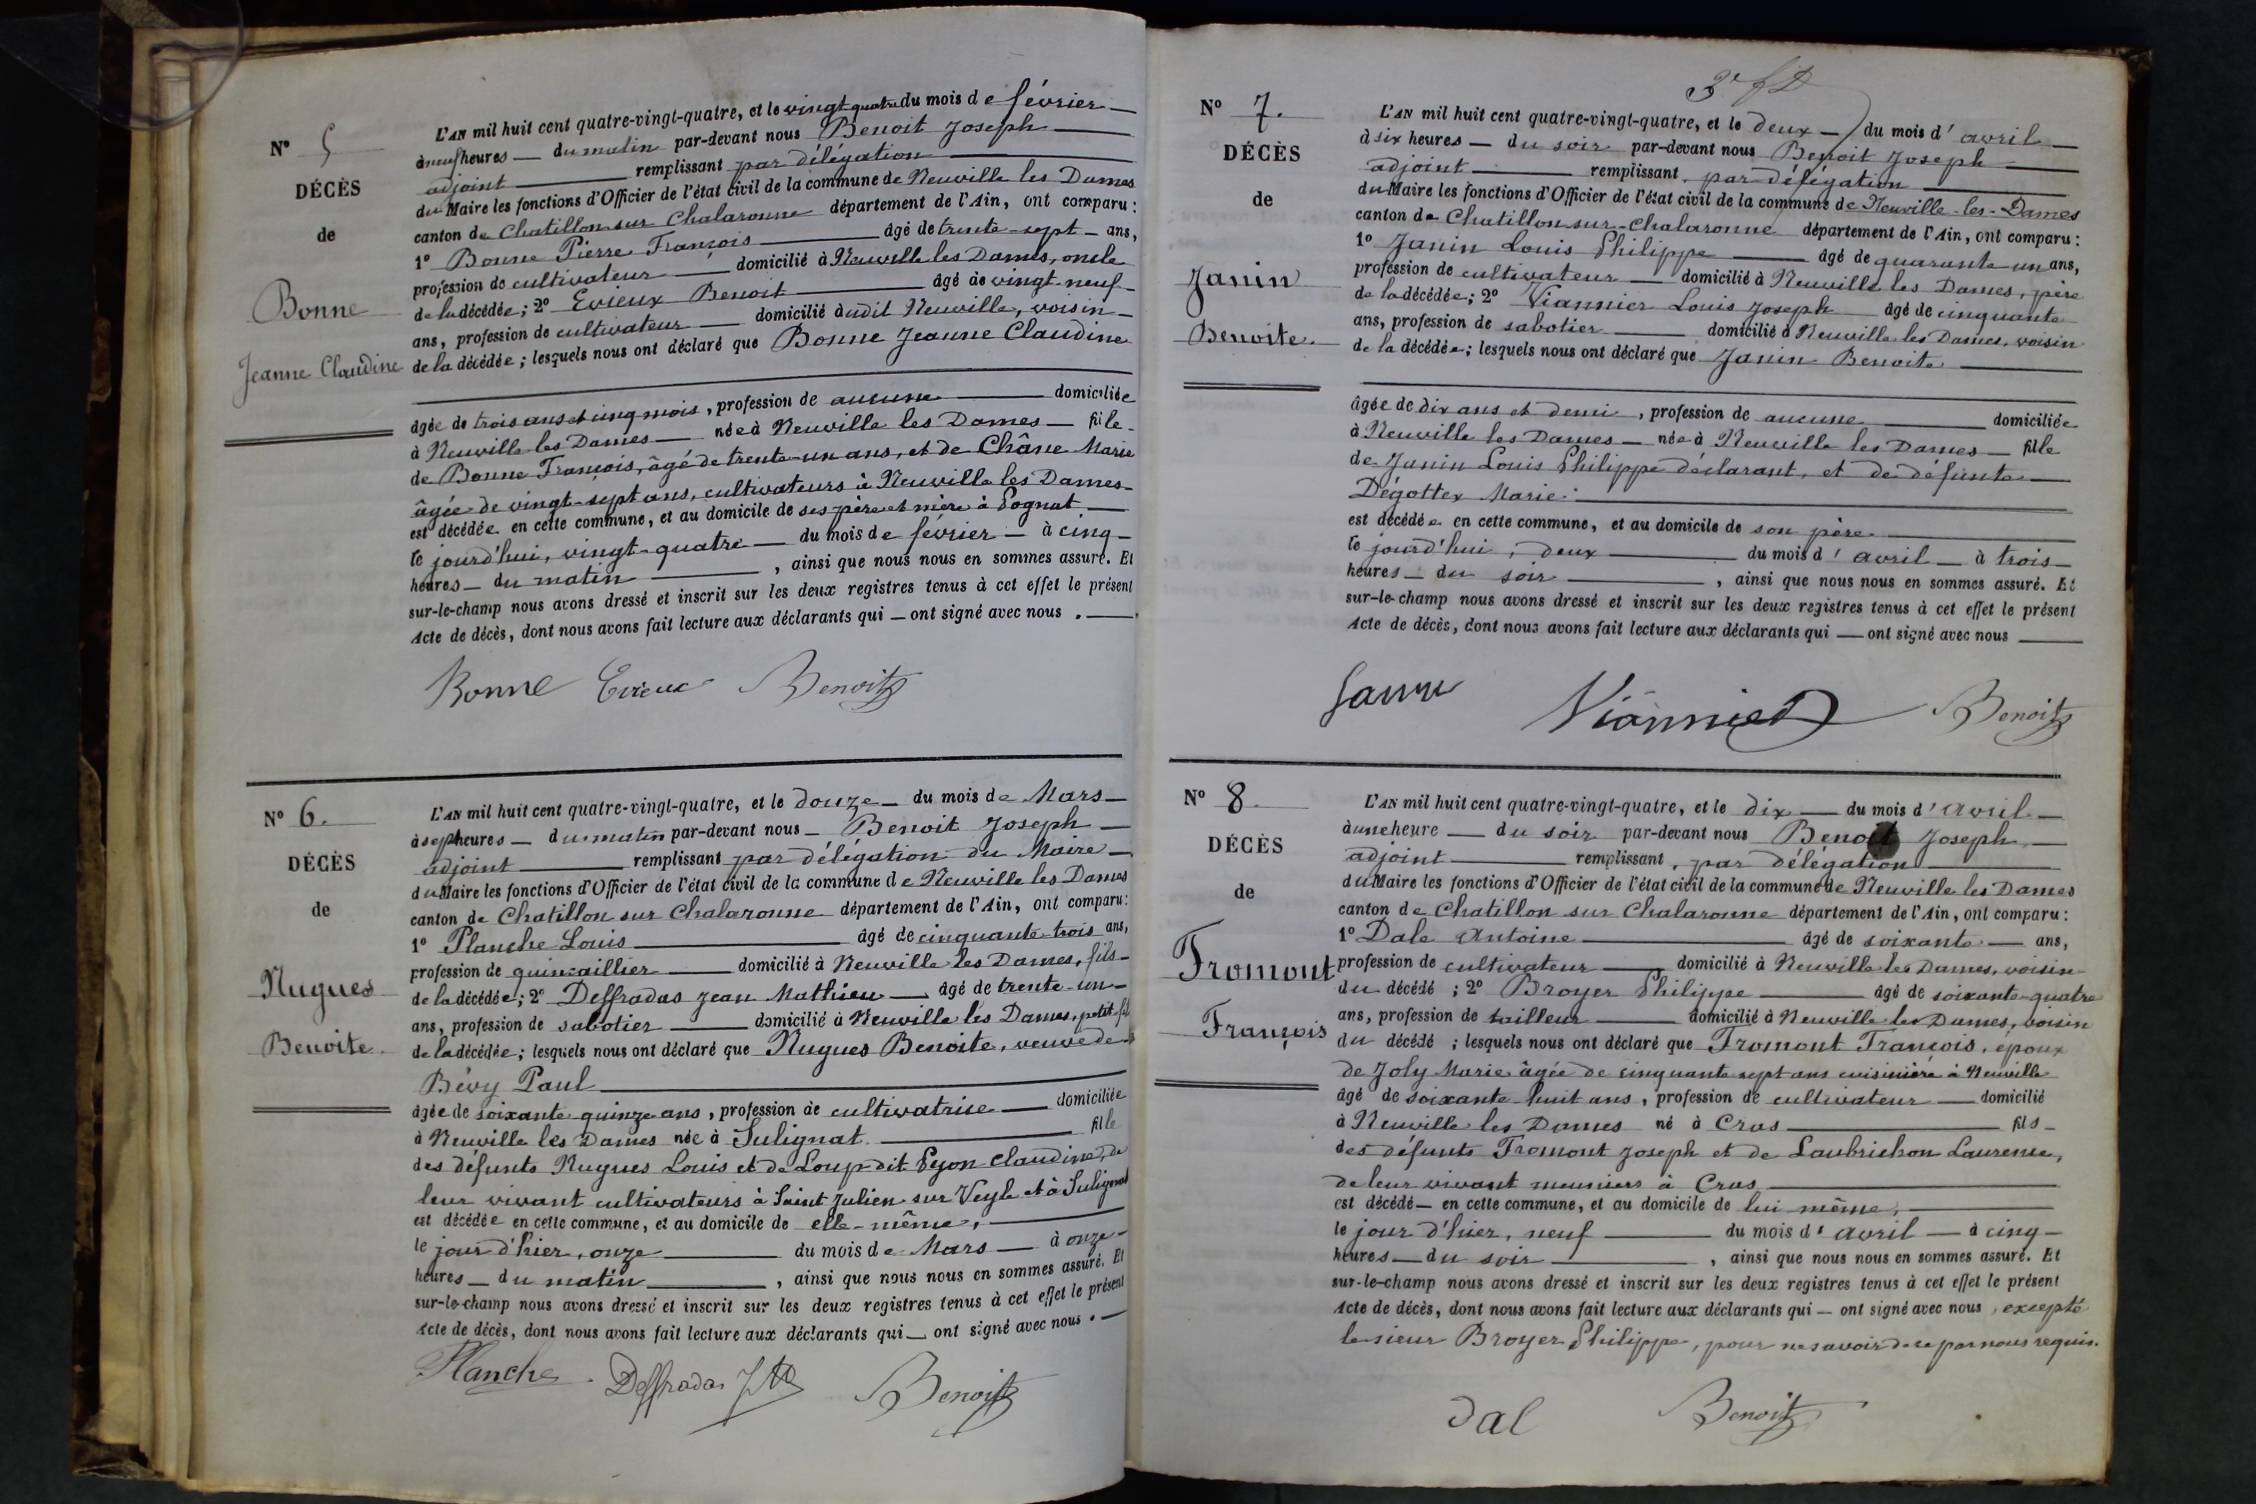 N° 5
DÉCÈS
de
Bonne
Jeanne Claudine
L'AN mil huit cent quatre-vingt-quatre, et le vingt quatre du mois de février
à neuf heures — du matin par-devant nous Benoit Joseph
adjoint remplissant par délégation
du Maire les fonctions d'Officier de l'état civil de la commune de Neuville les Dames
canton de Chatillon sur Chalaronne département de l'Ain, ont comparu :
1° Bonne Pierre François âgé de trente-sept ans,
profession de cultivateur domicilié à Neuville les Dames, oncle
de la décédée ; 2° Evieux Benoit âgé de vingt-neuf
ans, profession de cultivateur domicilié audit Neuville, voisin
de la décédée ; lesquels nous ont déclaré que Bonne Jeanne Claudine
âgée de trois ans et cinq mois, profession de aucune domiciliée
à Neuville les Dames née à Neuville les Dames fille
de Bonne François, âgé de trente-un ans, et de Châne Marie
âgée de vingt-sept ans, cultivateurs à Neuville les Dames
est décédée en cette commune, et au domicile de ses père et mère à Pognat
le jourd'hui, vingt-quatre du mois de février à cinq
heures du matin, ainsi que nous nous en sommes assuré. Et
sur-le-champ nous avons dressé et inscrit sur les deux registres tenus à cet effet le présent
Acte de décès, dont nous avons fait lecture aux déclarants qui — ont signé avec nous.
Bonne Evieux Benoit
N° 6.
DÉCÈS
de
Nugues
Benoite.
L'AN mil huit cent quatre-vingt-quatre, et le douze du mois de Mars
à sept heures — du matin par-devant nous Benoit Joseph
adjoint remplissant par délégation du Maire
du Maire les fonctions d'Officier de l'état civil de la commune de Neuville les Dames
canton de Chatillon sur Chalaronne département de l'Ain, ont comparu :
1° Planche Louis âgé de cinquante-trois ans,
profession de quincaillier domicilié à Neuville les Dames, fils
de la décédée ; 2° Deffradas Jean Mathieu âgé de trente-un
ans, profession de sabotier domicilié à Neuville les Dames, petit-fils
de la décédée ; lesquels nous ont déclaré que Nugues Benoite, veuve de
Bévy Paul
âgée de soixante quinze ans, profession de cultivatrice domiciliée
à Neuville les Dames née à Sulignat fille
des défunts Nugues Louis et de Loup dit Pyon Claudine, de
leur vivant cultivateurs à Saint Julien sur Veyle et à Sulignat
est décédée en cette commune, et au domicile de elle-même,
le jour d'hier, onze du mois de Mars à onze
heures du matin, ainsi que nous nous en sommes assuré. Et
sur-le-champ nous avons dressé et inscrit sur les deux registres tenus à cet effet le présent
Acte de décès, dont nous avons fait lecture aux déclarants qui — ont signé avec nous.
Planche Deffradas Benoit
N° 7.
DÉCÈS
de
Janin
Benoite.
L'AN mil huit cent quatre-vingt-quatre, et le deux du mois d'avril
à six heures — du soir par-devant nous Benoit Joseph
adjoint remplissant, par délégation
du Maire les fonctions d'Officier de l'état civil de la commune de Neuville-les-Dames
canton de Chatillon-sur-Chalaronne département de l'Ain, ont comparu :
1° Janin Louis Philippe âgé de quarante un ans,
profession de cultivateur domicilié à Neuville les Dames, père
de la décédée ; 2° Viannier Louis Joseph âgé de cinquante
ans, profession de sabotier domicilié à Neuville les Dames, voisin
de la décédée ; lesquels nous ont déclaré que Janin Benoite
âgée de dix ans et demi, profession de aucune domiciliée
à Neuville les Dames née à Neuville les Dames fille
de Janin Louis Philippe déclarant, et de défunte
Dégottex Marie
est décédée en cette commune, et au domicile de son père
le jourd'hui, deux du mois d'avril à trois
heures du soir, ainsi que nous nous en sommes assuré. Et
sur-le-champ nous avons dressé et inscrit sur les deux registres tenus à cet effet le présent
Acte de décès, dont nous avons fait lecture aux déclarants qui — ont signé avec nous
Janin Viannier Benoit
N° 8
DÉCÈS
de
Fromont
François
L'AN mil huit cent quatre-vingt-quatre, et le dix du mois d'avril
à une heure — du soir par-devant nous Benoit Joseph
adjoint remplissant, par délégation
du Maire les fonctions d'Officier de l'état civil de la commune de Neuville les Dames
canton de Chatillon sur Chalaronne département de l'Ain, ont comparu :
1° Dale Antoine âgé de soixante ans,
profession de cultivateur domicilié à Neuville les Dames, voisin
du décédé ; 2° Broyer Philippe âgé de soixante-quatre
ans, profession de tailleur domicilié à Neuville les Dames, voisin
du décédé ; lesquels nous ont déclaré que Fromont François, époux
de Joly Marie âgée de cinquante sept ans cuisinière à Neuville
âgé de soixante-huit ans, profession de cultivateur domicilié
à Neuville les Dames né à Cras fils
des défunts Fromont Joseph et de Laubrichon Laurence,
de leur vivant meuniers à Cras
est décédé en cette commune, et au domicile de lui même,
le jour d'hier, neuf du mois d'avril à cinq
heures du soir, ainsi que nous nous en sommes assuré. Et
sur-le-champ nous avons dressé et inscrit sur les deux registres tenus à cet effet le présent
Acte de décès, dont nous avons fait lecture aux déclarants qui — ont signé avec nous, excepté
le sieur Broyer Philippe, pour ne savoir de ce par nous requis.
Dal Benoit